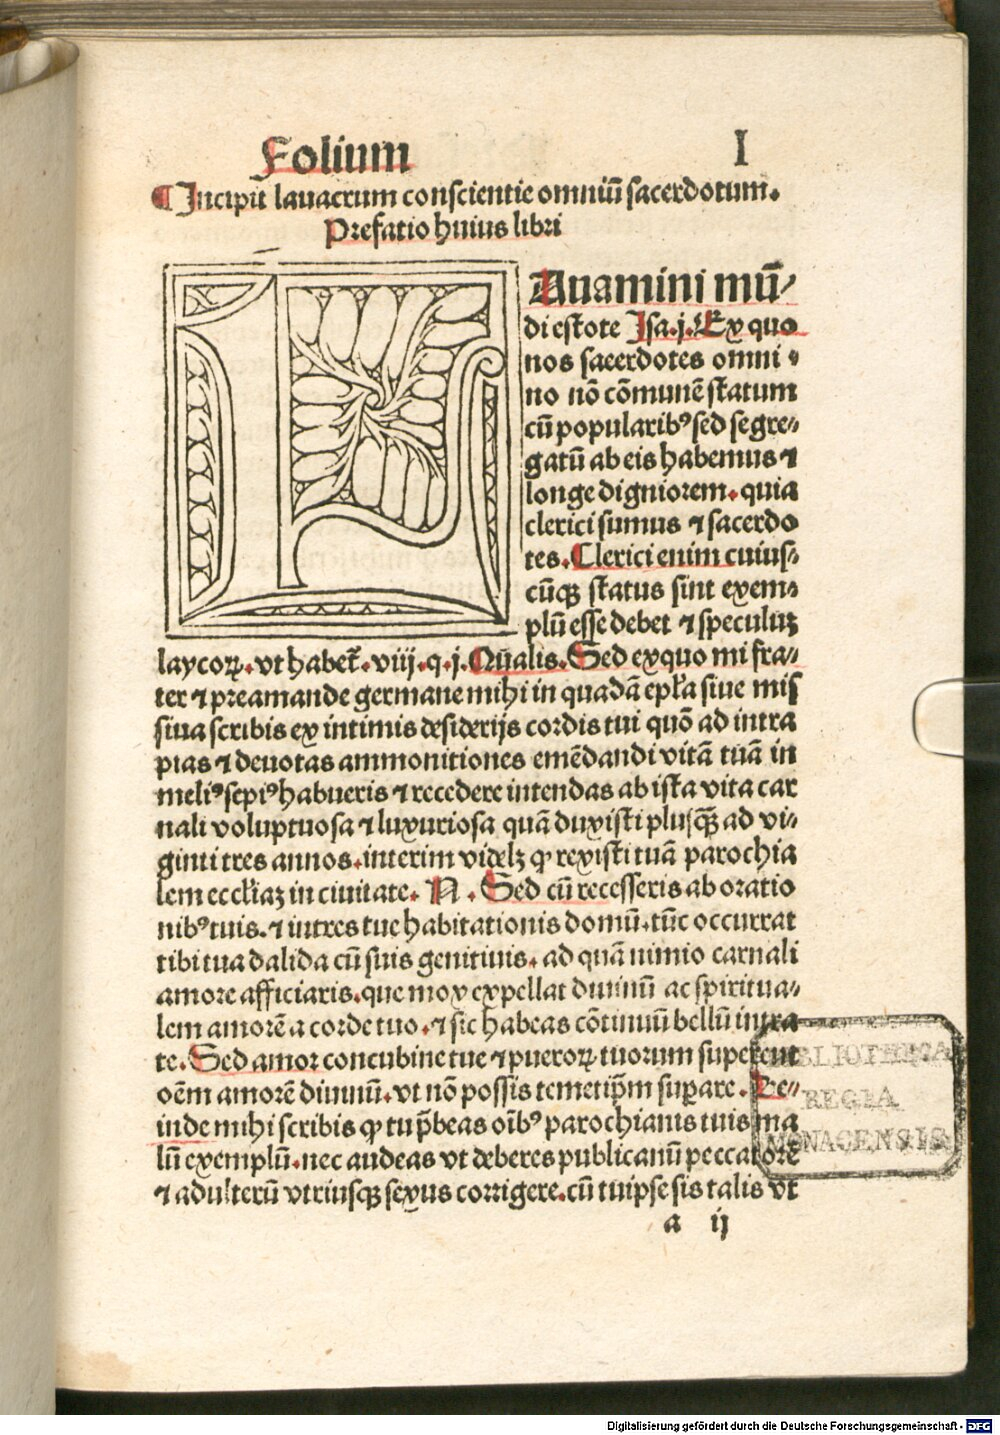 Folium I
¶ Incipit lauacrum conscientie omniũ sacerdotum.
Prefatio huius libri
LAuamini mũ-
di estote Isa.j. Ex quo
nos sacerdotes omni-
no nō cōmunē statum
cũ popularibꝰ sed segre-
gatũ ab eis habemus ⁊
longe digniorem. quia
clerici sumus ⁊ sacerdo
tes. Clerici enim cuius-
cũqꝫ status sint exem-
plũ esse debet ⁊ speculuꝫ
laycoꝝ. vt habet̃. viij. q. j. Qũalis. Sed ex quo mi fra-
ter ⁊ preamande germane mihi in quadã epła siue mis
siua scribis ex intimis desiderijs cordis tui quō ad intra
pias ⁊ deuotas ammonitiones emēdandi vitã tuã in
meliꝰ sepiꝰ habueris ⁊ recedere intendas ab ista vita car
nali voluptuosa ⁊ luxuriosa quã duxisti plusqꝫ̃ ad vi-
ginti tres annos. interim videlꝫ ꝙ rexisti tuã parochia
lem eccłiaꝫ in ciuitate. N. Sed cũ recesseris ab oratio
nibꝰ tuis. ⁊ intres tue habitationis domũ. tũc occurrat
tibi tua dalida cũ suis genitiuis. ad quã nimio carnali
amore afficiaris. que mox expellat diuinũ ac spiritua-
lem amorē a corde tuo. ⁊ sic habeas cōtinuũ bellũ intra
te. Sed amor concubine tue ⁊ pueroꝝ tuorum superent
oēm amorē diuinũ. vt nō possis temetip̃m suꝑare. De-
inde mihi scribis ꝙ tu p̃beas oĩbꝰ parochianis tuis ma
lũ exemplũ. nec audeas vt deberes publicanũ peccatorē
⁊ adulterũ vtriusqꝫ sexus corrigere. cũ tuipse sis talis vt
a ij
BIBLIOTHECA
REGIA
MONACENSIS
Digitalisierung gefördert durch die Deutsche Forschungsgemeinschaft - DFG